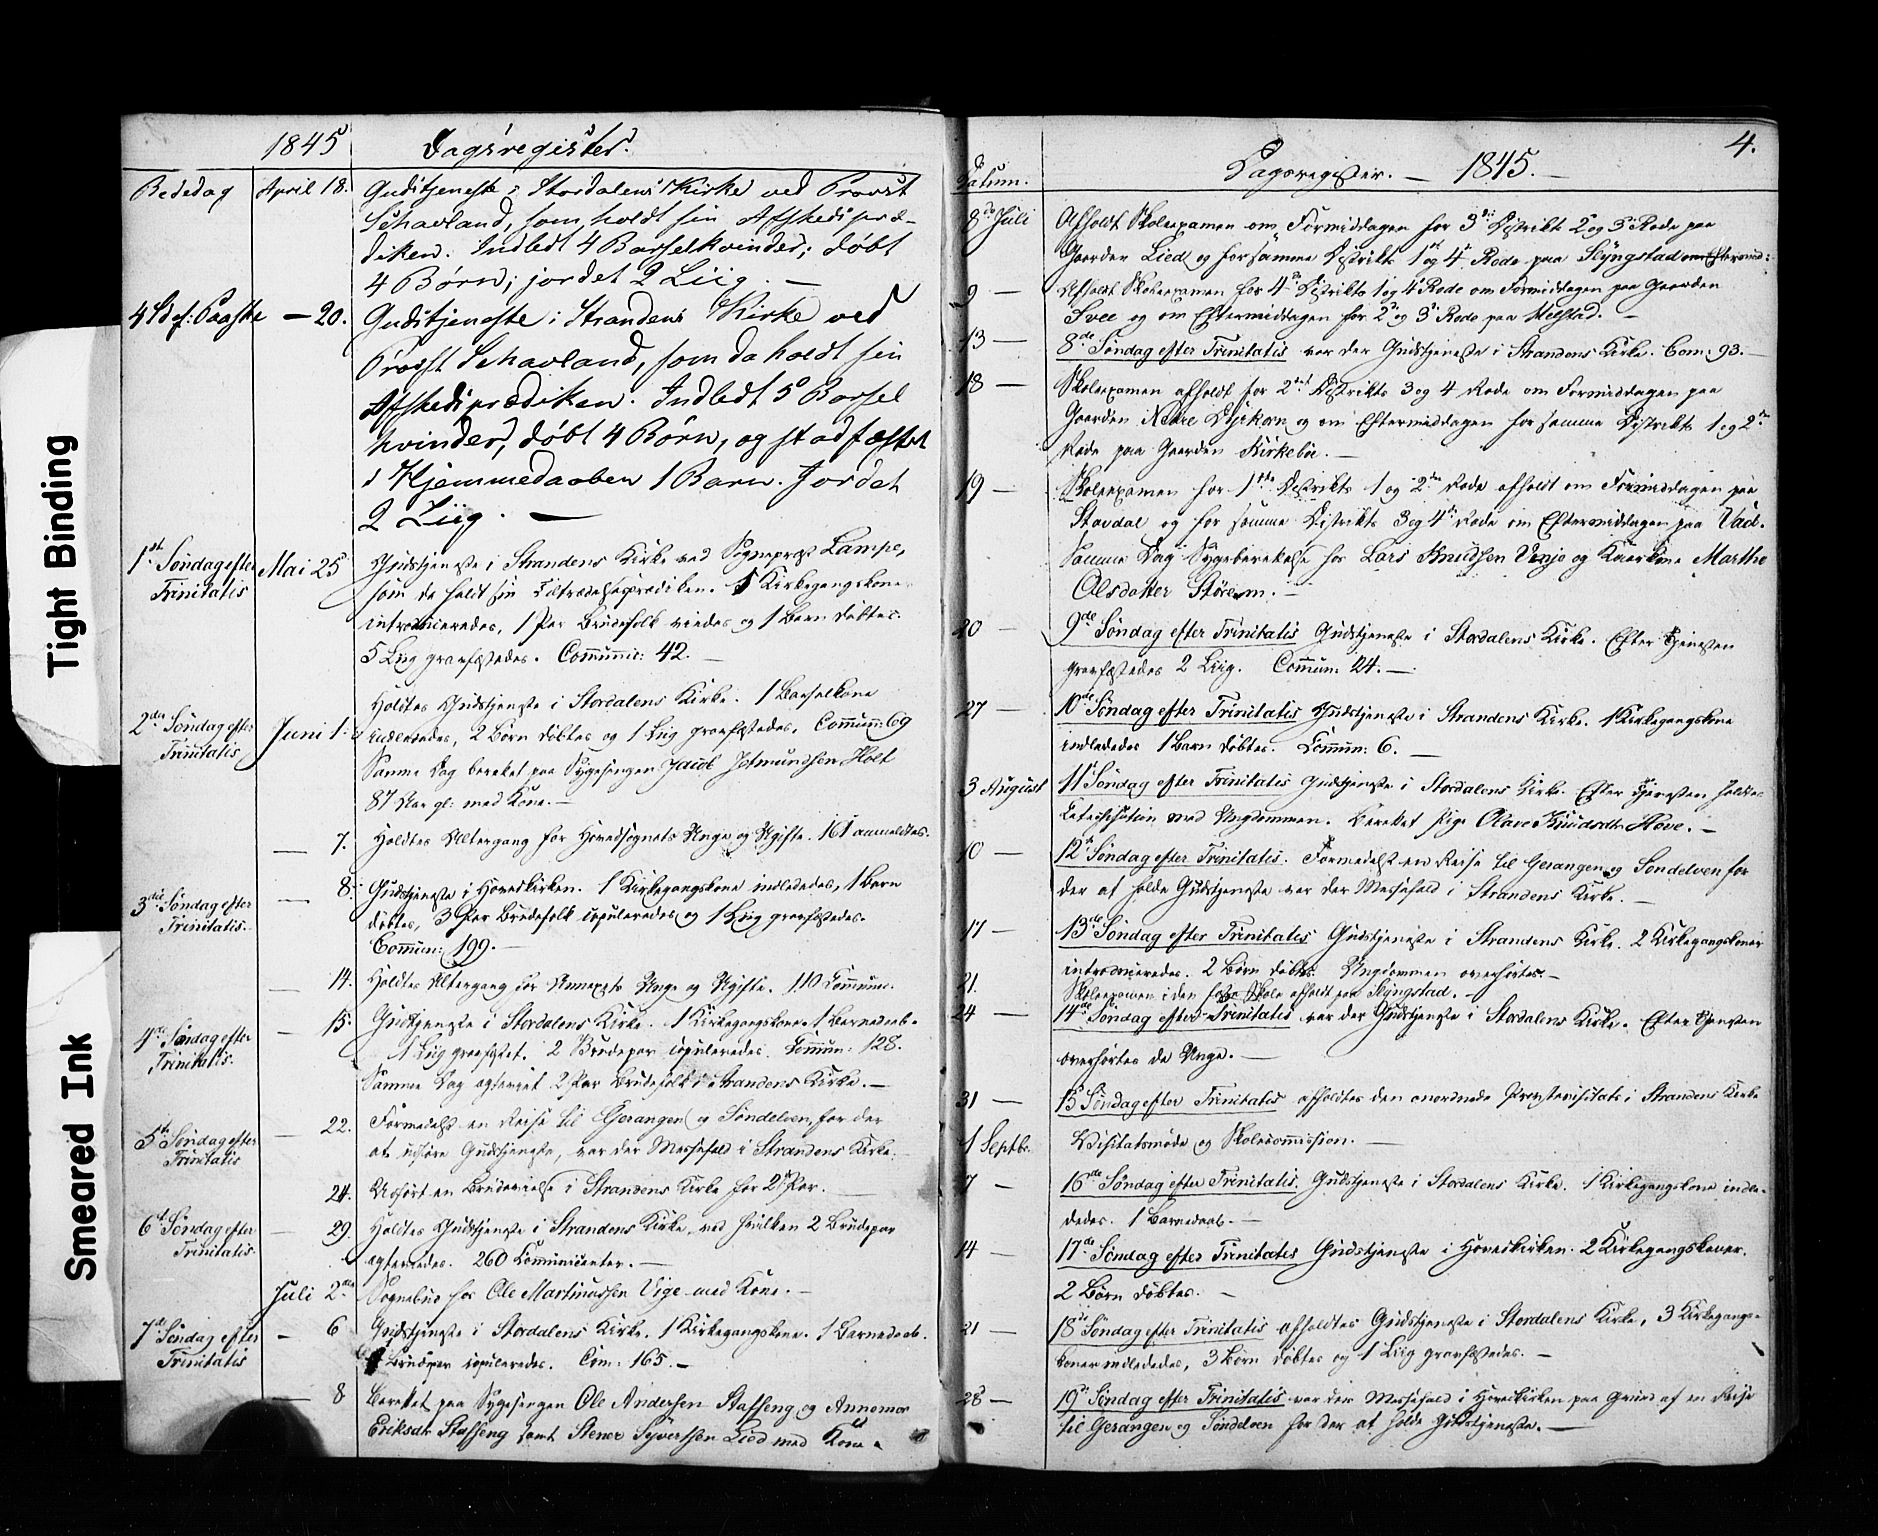 Tight Binding
Smeared Ink
1845 Dagsregister.
Bededag April 18. Gudstjeneste i Stordalens Kirke ved Provst
Schavland, som holdt sin Afskedspræ-
diken. Indledt 4 Barselkvinder; døbt
4 Børn; jordet 2 Liig. —
4 S. ef: Paaske — 20. Gudstjeneste i Strandens Kirke ved
Provst Schavland, som da holdt sin
Afskedsprædiken. Indledt 5 Barsel
kvinder, døbt 4 Børn, og stadfæstet
i Hjemmedaaben 1 Barn. Jordet
2 Liig. —
1st Søndag efter Trinitatis Mai 25 Gudstjeneste i Strandens Kirke ved Sognepræst Lampe,
som da holdt sin Tiltrædelsesprædiken. 5 Kirkegangskone
introduceredes, 1 Par Brudefolk viedes og 1 Barn døbtes.
5 Liig gravfæstedes. Communic: 42. —
2den Søndag efter Trinitatis Juni 1. Holdtes Gudstjeneste i Stordalens Kirke. 1 Barselkone
indlededes, 2 Børn døbtes og 1 Liig gravfæstedes. Commun: 69
Samme Dag berettet paa Sygesengen Jacob Jetmundsen Holt
87 Aar gl: med Kone. —
— 7. Holdtes Altergang for Hovedsognets Unge og Ugifte. 161 anmeldtes.
3die Søndag efter Trinitatis. — 8. Gudstjeneste i Hovedkirken. 1 Kirkegangskone indlededes, 1 Barn
døbtes, 3 Par Brudefolk copuleredes og 1 Liig gravfæstedes.
Commun: 199. —
— 14. Holdtes Altergang for Annexets Unge og Ugifte. 110 Commun.
4de Søndag efter Trinitatis. — 15. Gudstjeneste i Stordalens Kirke. 1 Kirkegangskone. 1 Barnedaab.
1 Liig gravfæstet. 2 Brudepar copuleredes. Commun: 128.
Samme Dag egteviet 2 Par Brudefolk i Strandens Kirke. —
5te Søndag efter Trinitatis — 22. Formedelst en Reise til Gerangen og Søndelven, for der
at udføre Gudstjeneste, var der Messefald i Strandens Kirke.
24. Udført en Brudevielse i Strandens Kirke for 2 Par.
6te Søndag efter Trinitatis — 29. Holdtes Gudstjeneste i Strandens Kirke, ved hvilken 2 Brudepar
egteviedes. 260 Communicanter. —
Juli 2den Sognebud hos Ole Martinussen Vige med Kone. —
7de Søndag efter Trinitatis — 6 Gudstjeneste i Stordalens Kirke. 1 Kirkegangskone. 1 Barnedaab.
Brudepar copuleredes. Com: 165. —
— 8 Berettet paa Sygesengen Ole Andersen Stafseng og Annemor
Eriksdr Stafseng samt Stener Syvertsen Lied med Kone.
4.
Datum. Dagsregister. — 1845. —
8de Juli Afholdt Skoleexamen om Formiddagen for 3die Distrikts 2 og 3 Rode paa
Gaarden Lied og for samme Distrikts 1 og 4 Rode paa Slyngstad om Eftermid:
9 — Afholdt Skoleexamen for 4de Distrikts 1 og 4 Rode om Formiddagen paa Gaarden
Svee og om Eftermiddagen for 2 og 3 Rode paa Melstad. —
13 — 8de Søndag efter Trinitatis var der Gudstjeneste i Strandens Kirke. Com: 93. —
18 — Skoleexamen afholdt for 2det Distrikts 3 og 4 Rode om Formiddagen paa
Gaarden Nedre Dyrkorn og om Eftermiddagen for samme Distrikts 1 og 2den
Rode paa Gaarden Kirkebø. —
19 — Skoleexamen for 1ste Distrikts 1 og 2den Rode afholdt om Formiddagen paa
Stavdal og for samme Distrikts 3 og 4de Rode om Eftermiddagen paa Vad.
Samme Dag Sygeberettelse hos Lars Knudsen Venjo og Kaarkone Marthe
Olsdatter Støreem. —
20 — 9de Søndag efter Trinitatis Gudstjeneste i Stordalens Kirke. Efter Tjenesten
gravfæstedes 2 Liig. Commun: 24. —
27 — 10de Søndag efter Trinitatis Gudstjeneste i Strandens Kirke. 1 Kirkegangskone
indlededes 1 Barn døbtes. Commun: 6. —
3 August 11te Søndag efter Trinitatis Gudstjeneste i Stordalens Kirke. Efter Tjenesten holdtes
Catechisation med Ungdommen. Berettet Pige Olave Knudsdtr Hove. —
10 — 12te Søndag efter Trinitatis. Formedelst en Reise til Gerangen og Søndelven for
der at holde Gudstjeneste var der Messefald i Strandens Kirke. —
17 — 13de Søndag efter Trinitatis Gudstjeneste i Strandens Kirke. 2 Kirkegangskoner
introduceredes. 2 Børn døbtes. Ungdommen overhørtes. —
21. Skoleexamen i den faste Skole afholdt paa Slyngstad. —
24 — 14de Søndag efter Trinitatis var der Gudstjeneste i Stordalens Kirke. Efter Tjenesten
overhørtes de Unge. —
31 — 15 Søndag efter Trinitatis afholdtes den anordnede Provstevisitats i Strandens Kirke
1 Septbr. Visitatsmøde og Skolecommission. —
7 — 16de Søndag efter Trinitatis. Gudstjeneste i Stordalens Kirke. 1 Kirkegangskone indle-
dedes. 1 Barnedaab. —
14 — 17de Søndag efter Trinitatis Gudstjeneste i Hovedkirken. 2 Kirkegangskoner.
2 Børn døbtes. —
21 — 18de Søndag efter Trinitatis afholdtes Gudstjeneste i Stordalens Kirke, 3 Kirkegangs-
koner indlededes, 3 Børn døbtes og 1 Liig gravfæstedes. —
28 — 19de Søndag efter Trinitatis var der Messefald i Hovedkirken paa Grund af en Reise
til Gerangen og Søndelven for der at holde Gudstjeneste. —